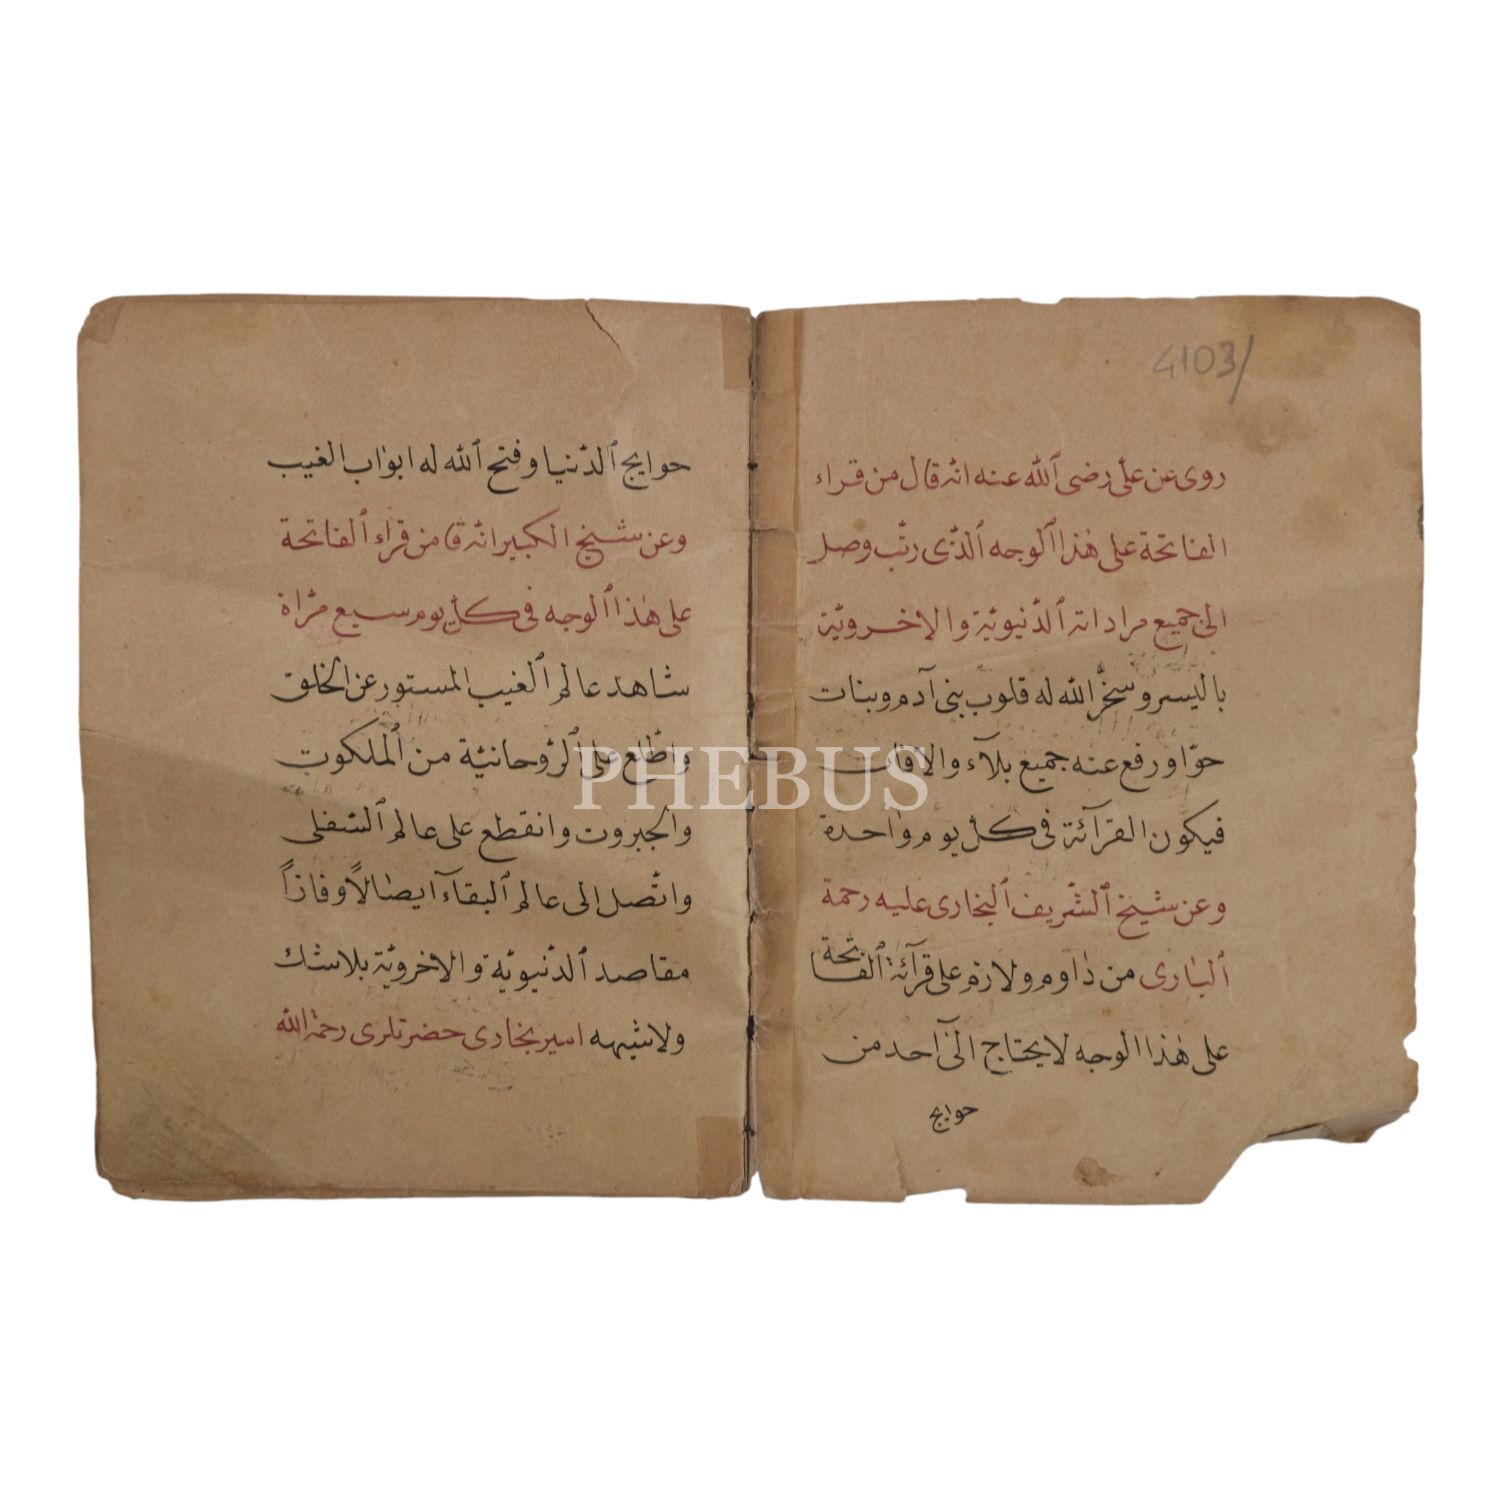 4103/
روى عن علىّ رضى ٱلله عنه انه قال من قراء
الفاتحة على هٰذا ٱلوجه ٱلذّى رتّب وصل
الى جميع مراداته ٱلدّنيويّة والاخرويّة
باليسر وسخّر الله له قلوب بنى آدم وبنات
حوّا ورفع عنه جميع بلآء والافات
فيكون القرآئة فى كلّ يوم واحدة
وعن شيخ ٱلشّريف ٱلبخارى عليه رحمة
ٱلبارى من داوم ولازم على قرآئة ٱلفاتحة
على هٰذا الوجه لا يحتاج الىٓ احد من
حوايج
حوايج ٱلدّنيا وفتح ٱلله له ابوٰاب الغيب
وعن شيخ الكبير انه قا من قراء ٱلفاتحة
على هٰذا ٱلوجه فى كلّ يوم سبع مرّاة
شاهد عالم ٱلغيب المستور عن الخلق
واطّلع على ٱلرّوحانيّة من ٱلملكوت
والجبروت وانقطع على عالم ٱلسّفلى
واتّصل الى عالم ٱلبقآء ايصٰالاً وفازاً
مقاصد ٱلدّنيويّة والاخرويّة بلا شك
ولا شبهه امير بخارى حضرتلرى رحمة الله
PHEBUS